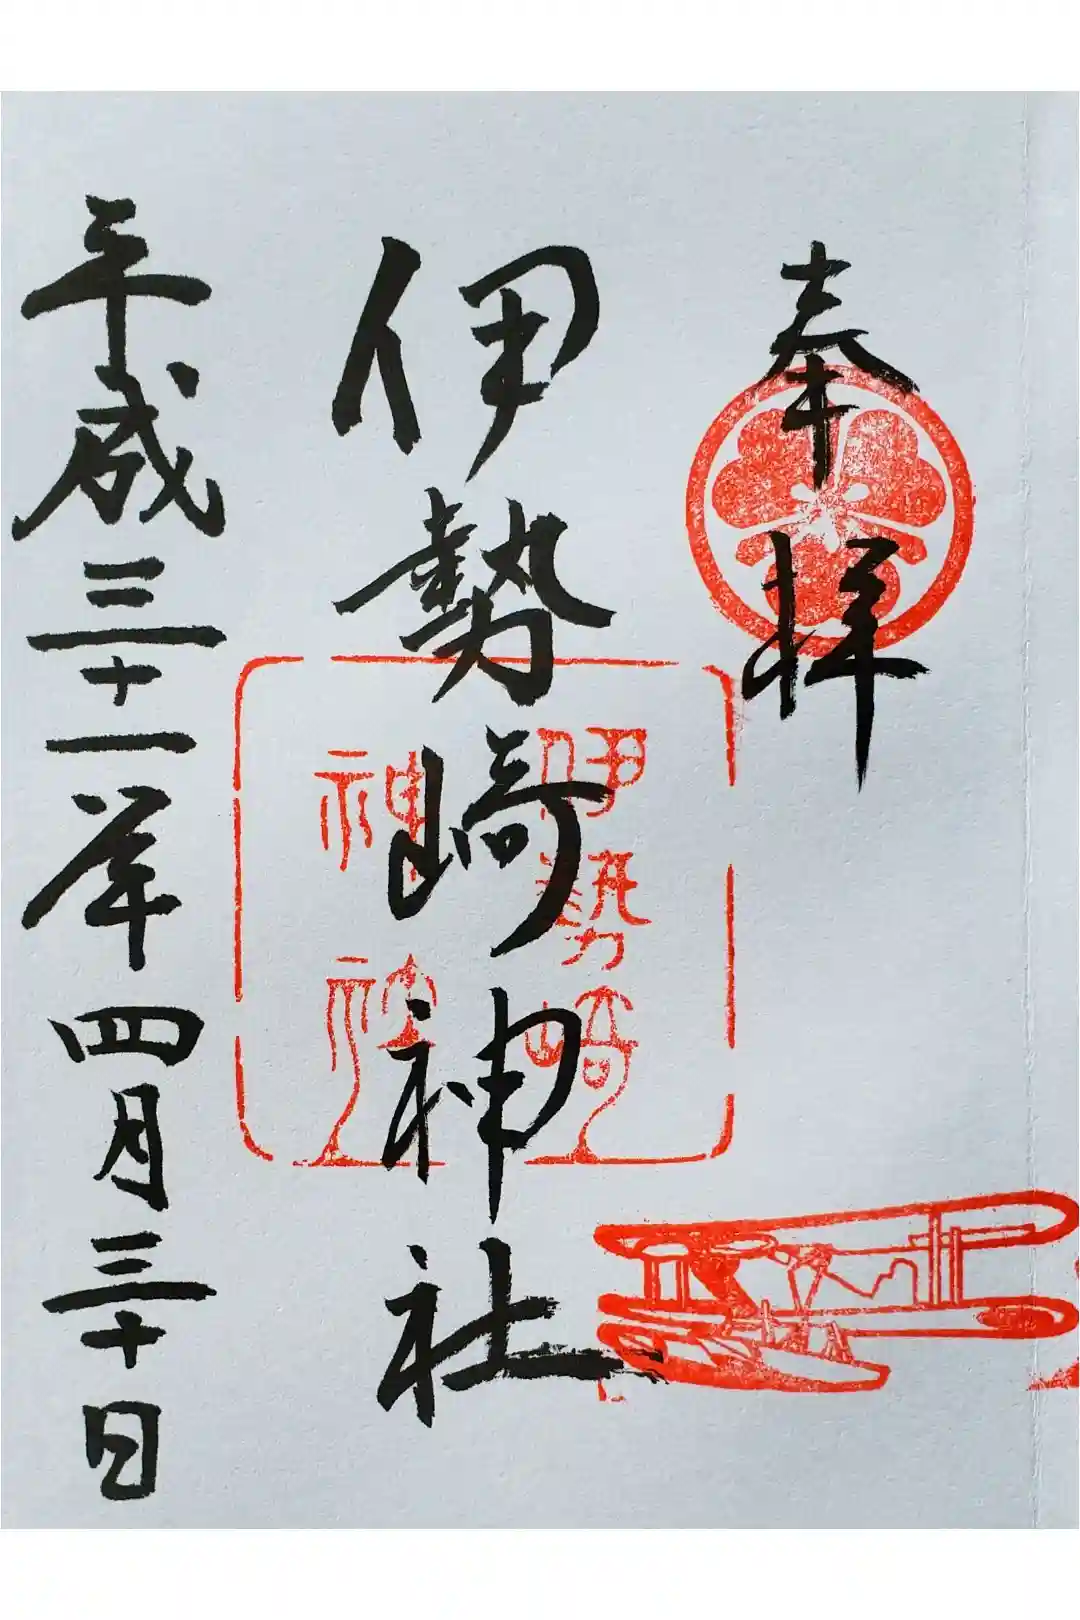 奉拝
伊勢崎神社
伊勢崎
神社
平成三十一年四月三十日